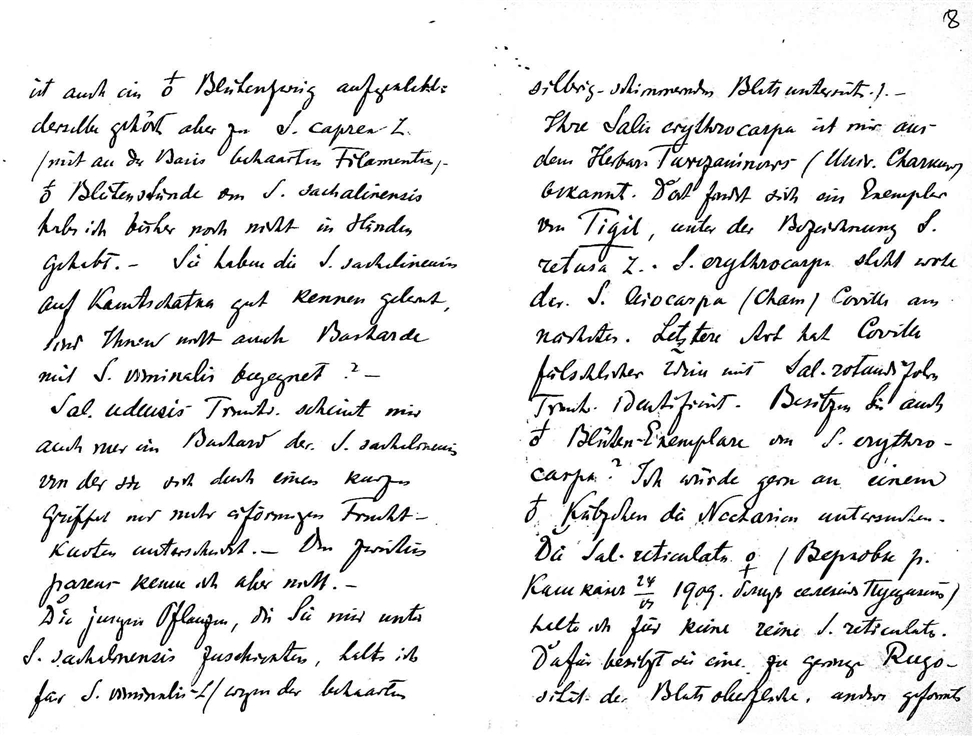 8
ist auch ein ♂ Blütenzweig aufgeklebt:
derselbe gehört aber zu S. caprea L.
(mit an der Basis behaarten Filamenten)-
♂ Blütenstände von S. sachalinensis
habe ich bisher noch nicht in Händen
gehabt. - Sie haben die S. sachalinensis
auf Kamtschatka gut kennen gelernt,
sind Ihnen nicht auch Bastarde
mit S. viminalis begegnet? -
Sal. udensis Trautv. scheint mir
auch nur ein Bastard der S. sachalinensis
von der sie sich durch einen kurzen
Griffel und mehr eiförmigen Frucht-
knoten unterscheidet. - Den zweiten
parens kenne ich aber nicht. -
Die jungen Pflanzen, die Sie mir unter
S. sachalinensis zuschickten, halte ich
für S. viminalis L. (wegen der behaarten
silbrig-schimmernden Blattunterseite). -
Ihre Salix erythrocarpa ist mir aus
dem Herbar (Univ.
bekannt. Dort fand sich ein Exemplar
von Tigil, unter der Bezeichnung S.
retusa L. S. erythrocarpa steht wohl
der S. liocarpa (Cham) Coville am
nächsten. Letztere Art hat Coville
fälschlicher Weise mit Sal. rotundifolia
Trautv. identificirt. Besitzen Sie auch
♂ Blüten-Exemplare von S. erythro-
carpa? Ich würde gern an einem
♂ Kätzchen die Nectarien untersuchen.
Die Sal. reticulata ♀ (Верховье р.
1909. близъ селения
halte ich für keine reine S. reticulata.
Dafür besitzt sie eine zu geringe Rugo-
sität der Blattoberfläche, anders geformte